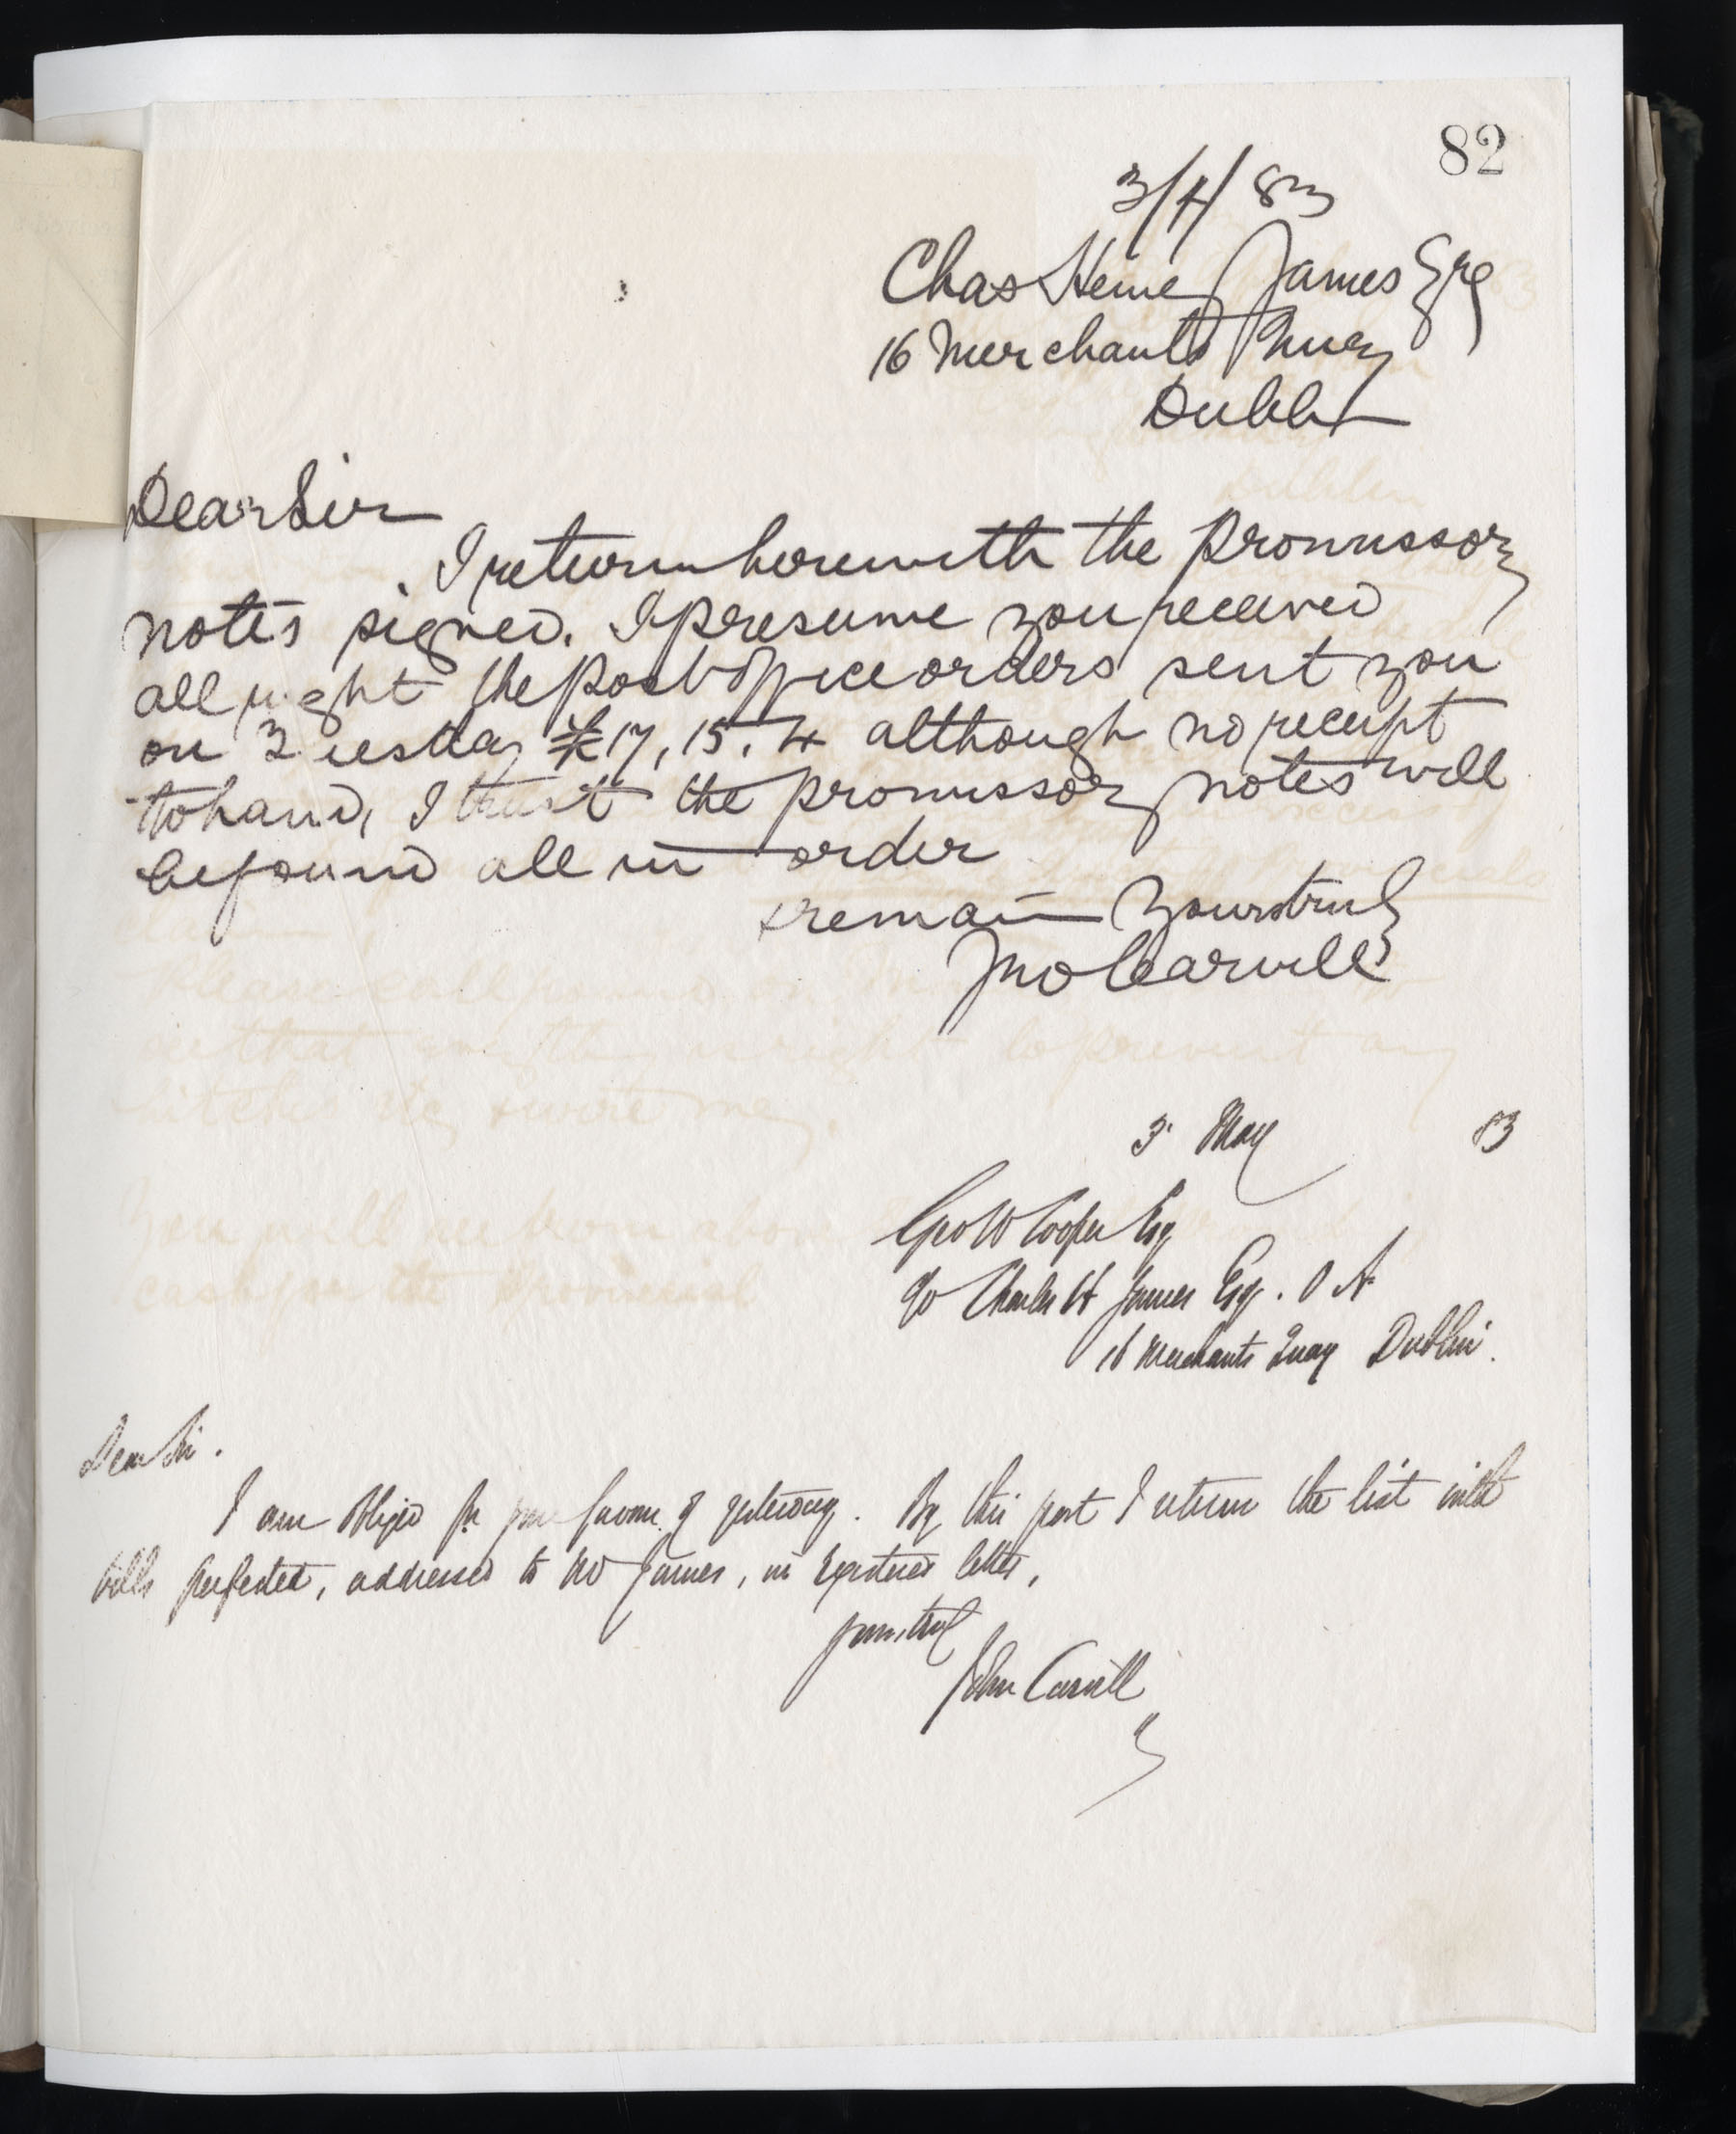 82
3/4/83
Chas Henry James Esq
16 Merchants Quay
Dublin
Dear Sir
I return herewith the promissory
notes signed. I presume you received
all right the post office orders sent you
on Tuesday £17,15.4 although no receipt
to hand, I trust the promissory notes will
be found all in order
& remain Yours truly
Jno Carvill
3 May 83
Geo W Cooper Esq
c/o Charles H James Esq. O A
16 Merchants Quay Dublin.
Dear Sir.
I am obliged for your favour of yesterday. By this post I return the list with
bills perfected, addressed to Mr James, in registered letter,
yours truly
John Carvill